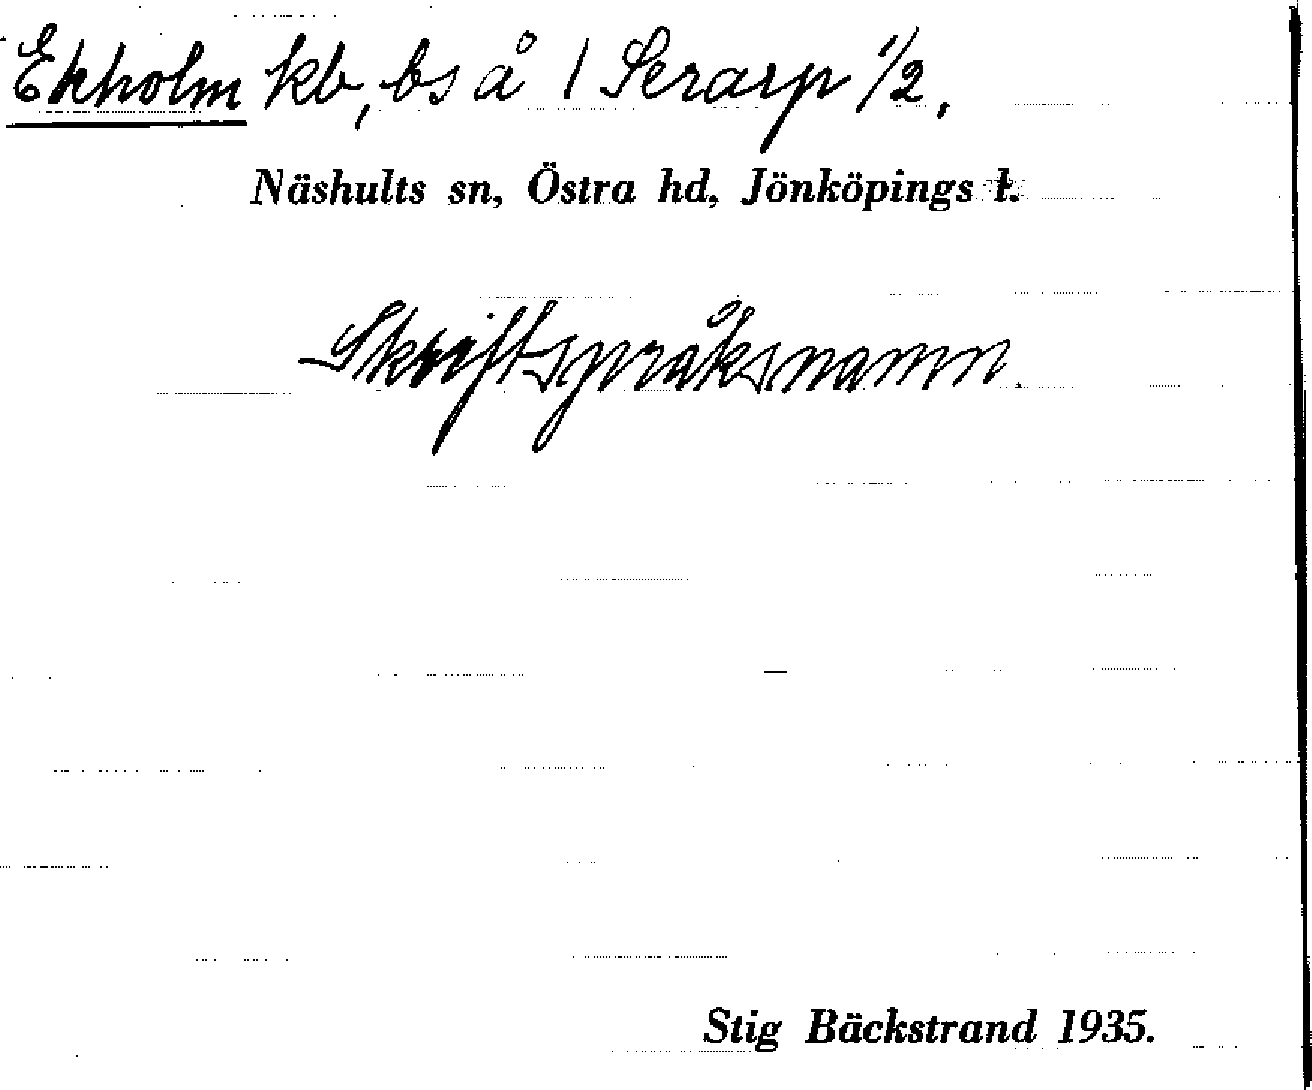 Ekholm kb, bs å 1 Serarp 1/2,
Näshults sn, Östra hd, Jönköpings l.
Skriftspråksnamn.
Stig Bäckstrand 1935.